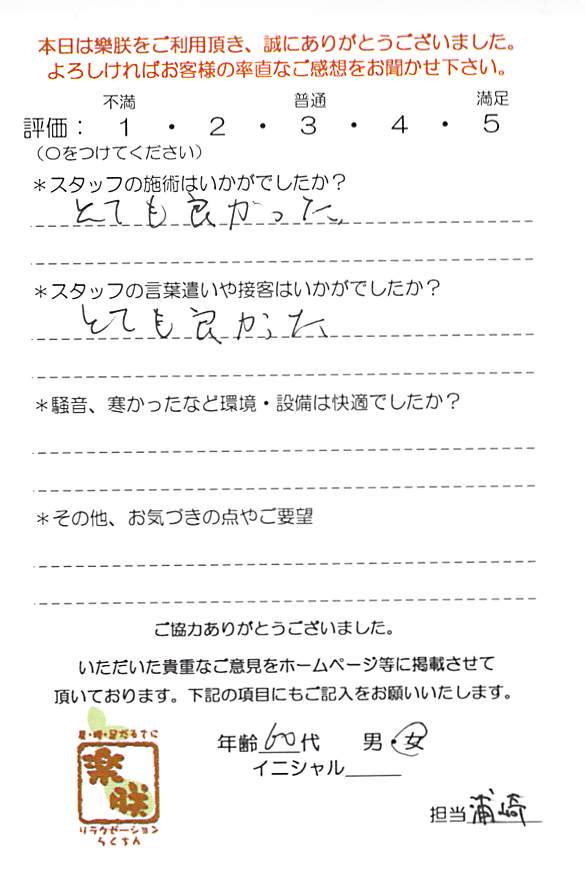 本日は樂朕をご利用頂き、誠にありがとうございました。
よろしければお客様の率直なご感想をお聞かせ下さい。
不満 普通 満足
評価： 1 ・ 2 ・ 3 ・ 4 ・ 5
（○をつけてください）
＊スタッフの施術はいかがでしたか？
とても良かった、
＊スタッフの言葉遣いや接客はいかがでしたか？
とても良かった
＊騒音、寒かったなど環境・設備は快適でしたか？
＊その他、お気づきの点やご要望
ご協力ありがとうございました。
いただいた貴重なご意見をホームページ等に掲載させて
頂いております。下記の項目にもご記入をお願いいたします。
年齢 60代 男・女
イニシャル
担当 浦崎
楽朕
リラクゼーション
らくちん